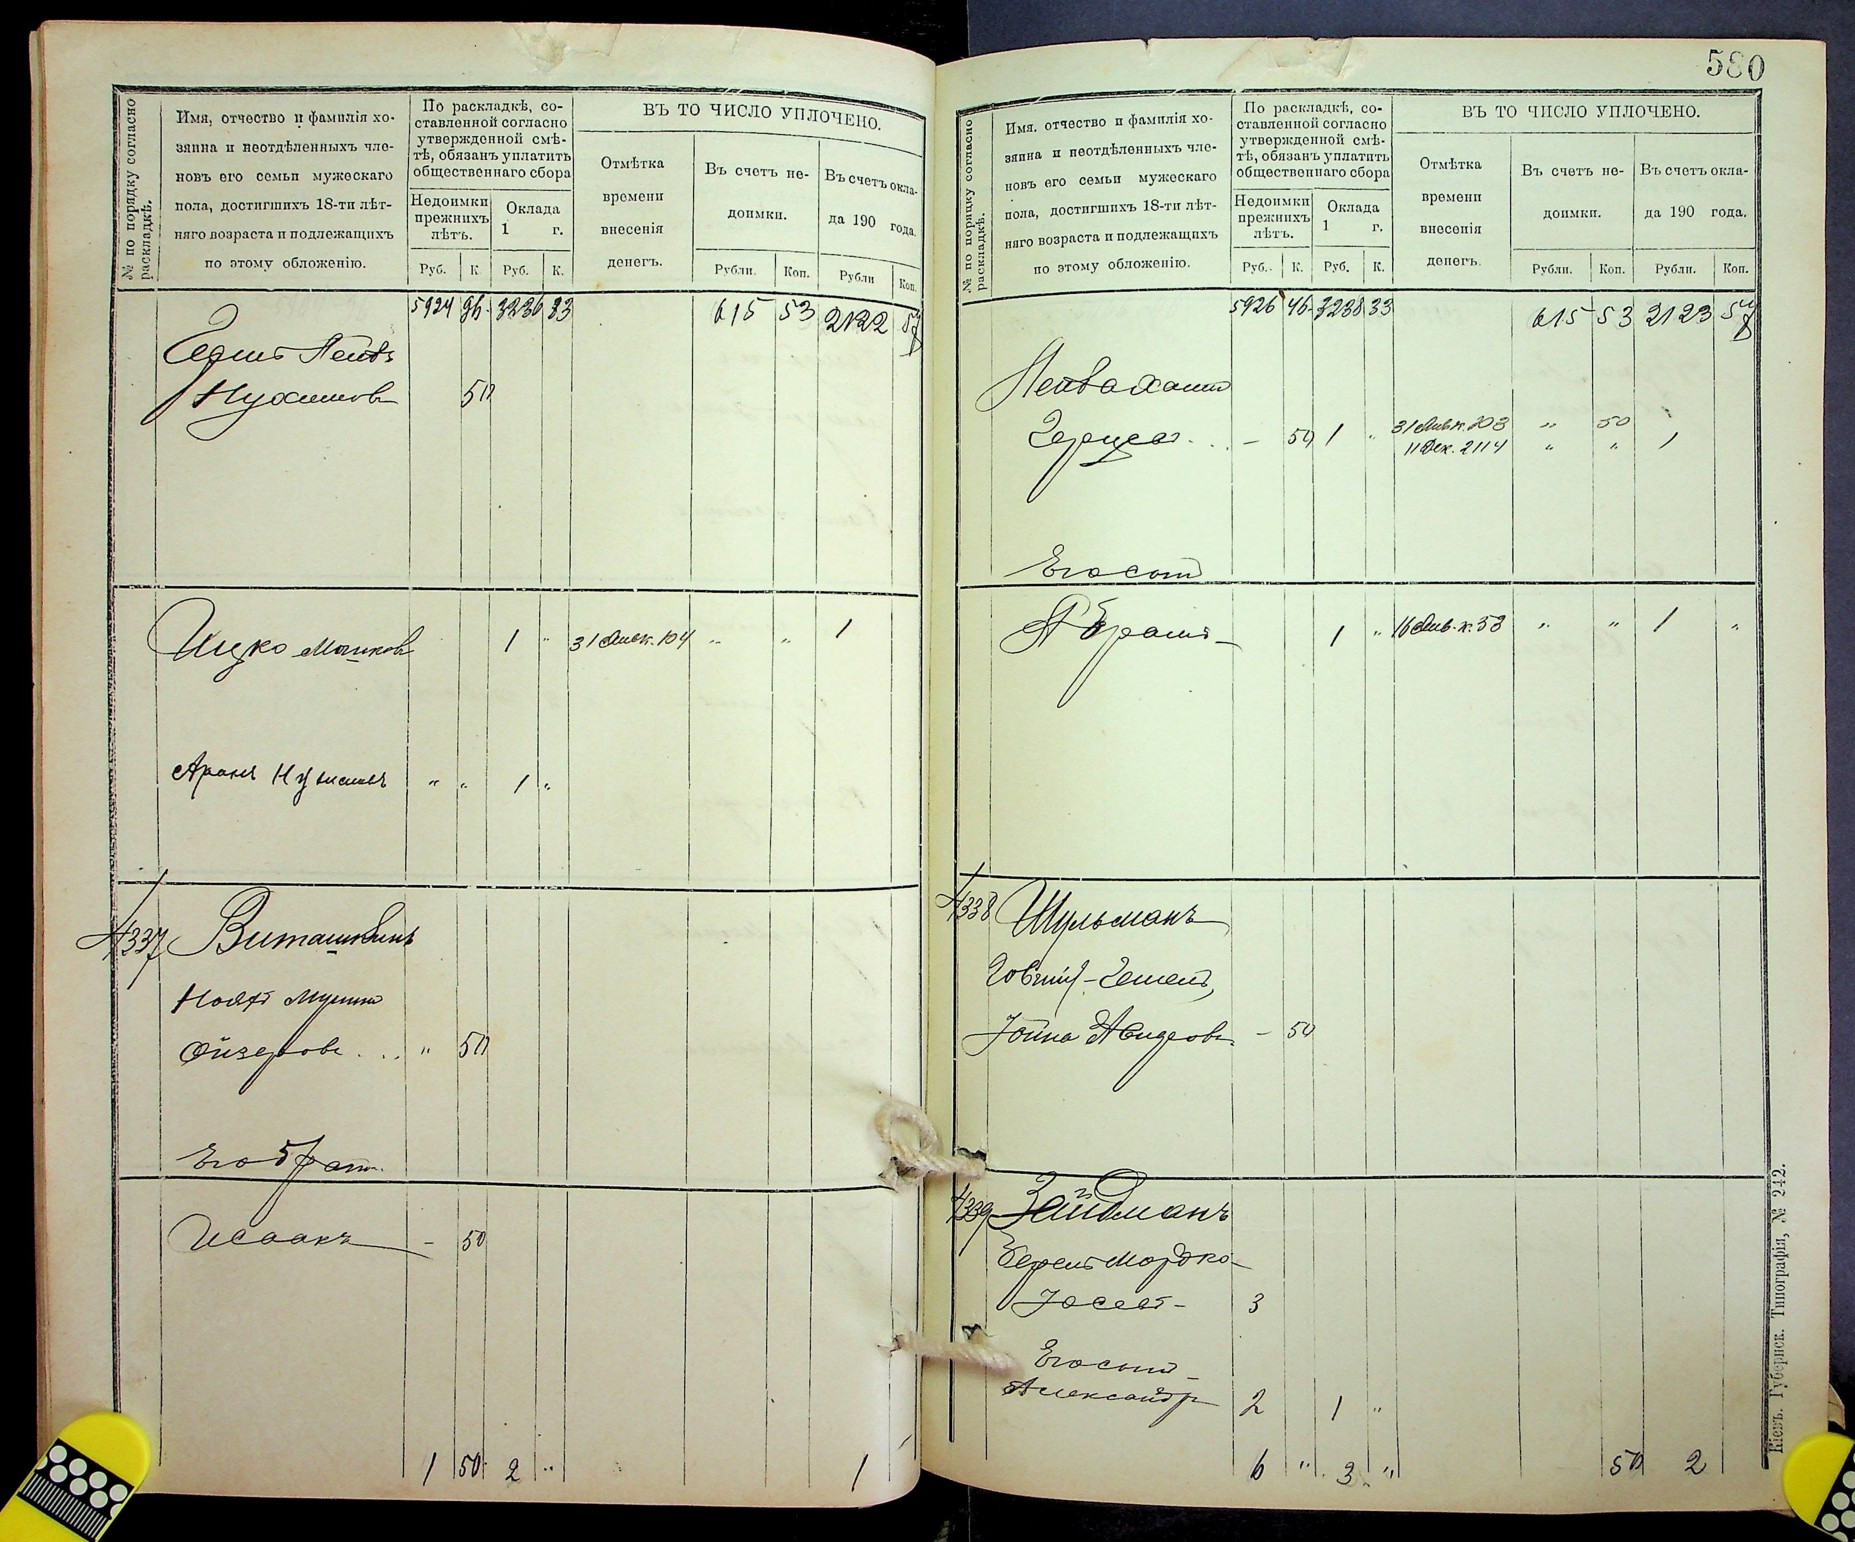 № по порядку согласно раскладкѣ.
Имя, отчество и фамилія хозяина и неотдѣленныхъ членовъ его семьи мужескаго пола, достигшихъ 18-ти лѣтняго возраста и подлежащихъ по этому обложенію.
По раскладкѣ, составленной согласно утвержденной смѣтѣ, обязанъ уплатить общественнаго сбора
Недоимки прежнихъ лѣтъ.
Оклада 1 г.
Руб. К. Руб. К.
ВЪ ТО ЧИСЛО УПЛОЧЕНО.
Отмѣтка времени внесенія денегъ.
Въ счетъ недоимки.
Въ счетъ оклада 190 года.
Рубли. Коп. Рубли Коп.
5924 96 3236 33 615 53 2122 57
Нухимовъ 50
Ицко Мошковъ 1 " 31 Янв. к. 104 " " 1
" " 1 "
4337
Ойзеровъ . . . " 50
Его братъ
Исаакъ – 50
1 50 2 " 1
580
№ по порядку согласно раскладкѣ.
Имя, отчество и фамилія хозяина и неотдѣленныхъ членовъ его семьи мужескаго пола, достигшихъ 18-ти лѣтняго возраста и подлежащихъ по этому обложенію.
По раскладкѣ, составленной согласно утвержденной смѣтѣ, обязанъ уплатить общественнаго сбора
Недоимки прежнихъ лѣтъ.
Оклада 1 г.
Руб. К. Руб. К.
ВЪ ТО ЧИСЛО УПЛОЧЕНО.
Отмѣтка времени внесенія денегъ.
Въ счетъ недоимки.
Въ счетъ оклада 190 года.
Рубли. Коп. Рубли. Коп.
5926 46 3238 33 615 53 2123 57
– 50 1 " 31 Янв. к. 203 " 50
11 Дек. 2114 " " 1
Его сынъ
Абрамъ – 1 " 16 Янв. к. 53 " " 1 "
4338 Шульманъ
– 50
4339 Зайдманъ
Берель Мордко-
Іосевъ – 3
Его сынъ –
Александръ 2 1 "
6 " 3 " 50 2
Кіевъ. Губернск. Типографія, № 242.